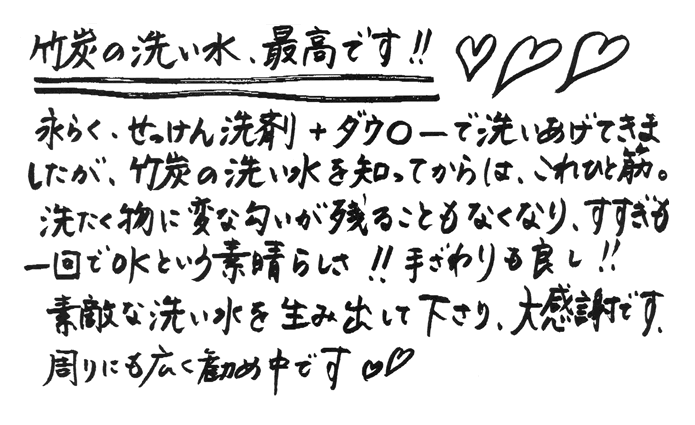 竹炭の洗い水、最高です!! ♡♡♡
永らく、せっけん洗剤+ダウ○ーで洗いあげてきま
したが、竹炭の洗い水を知ってからは、これひと筋。
洗たく物に変な匂いが残ることもなくなり、すすぎも
一回でOKという素晴らしさ!!手ざわりも良し!!
素敵な洗い水を生み出して下さり、大感謝です、
周りにも広く勧め中です♡♡